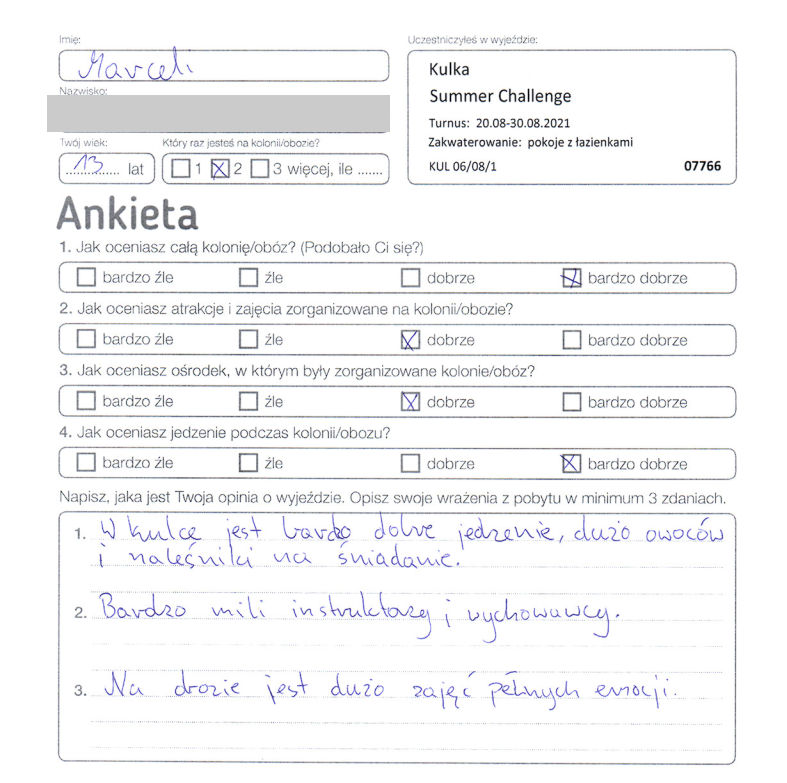 Imię:
Marceli
Nazwisko:
Twój wiek:
13 lat
Który raz jesteś na kolonii/obozie?
1 2 3 więcej, ile .......
Uczestniczyłeś w wyjeździe:
Kulka
Summer Challenge
Turnus: 20.08-30.08.2021
Zakwaterowanie: pokoje z łazienkami
KUL 06/08/1 07766
Ankieta
1. Jak oceniasz całą kolonię/obóz? (Podobało Ci się?)
bardzo źle źle dobrze bardzo dobrze
2. Jak oceniasz atrakcje i zajęcia zorganizowane na kolonii/obozie?
bardzo źle źle dobrze bardzo dobrze
3. Jak oceniasz ośrodek, w którym były zorganizowane kolonie/obóz?
bardzo źle źle dobrze bardzo dobrze
4. Jak oceniasz jedzenie podczas kolonii/obozu?
bardzo źle źle dobrze bardzo dobrze
Napisz, jaka jest Twoja opinia o wyjeździe. Opisz swoje wrażenia z pobytu w minimum 3 zdaniach.
1. W kulce jest bardzo dobre jedzenie, dużo owoców
i naleśniki na śniadanie.
2. Bardzo mili instruktorzy i wychowawcy.
3. Na obozie jest dużo zajęć pełnych emocji.